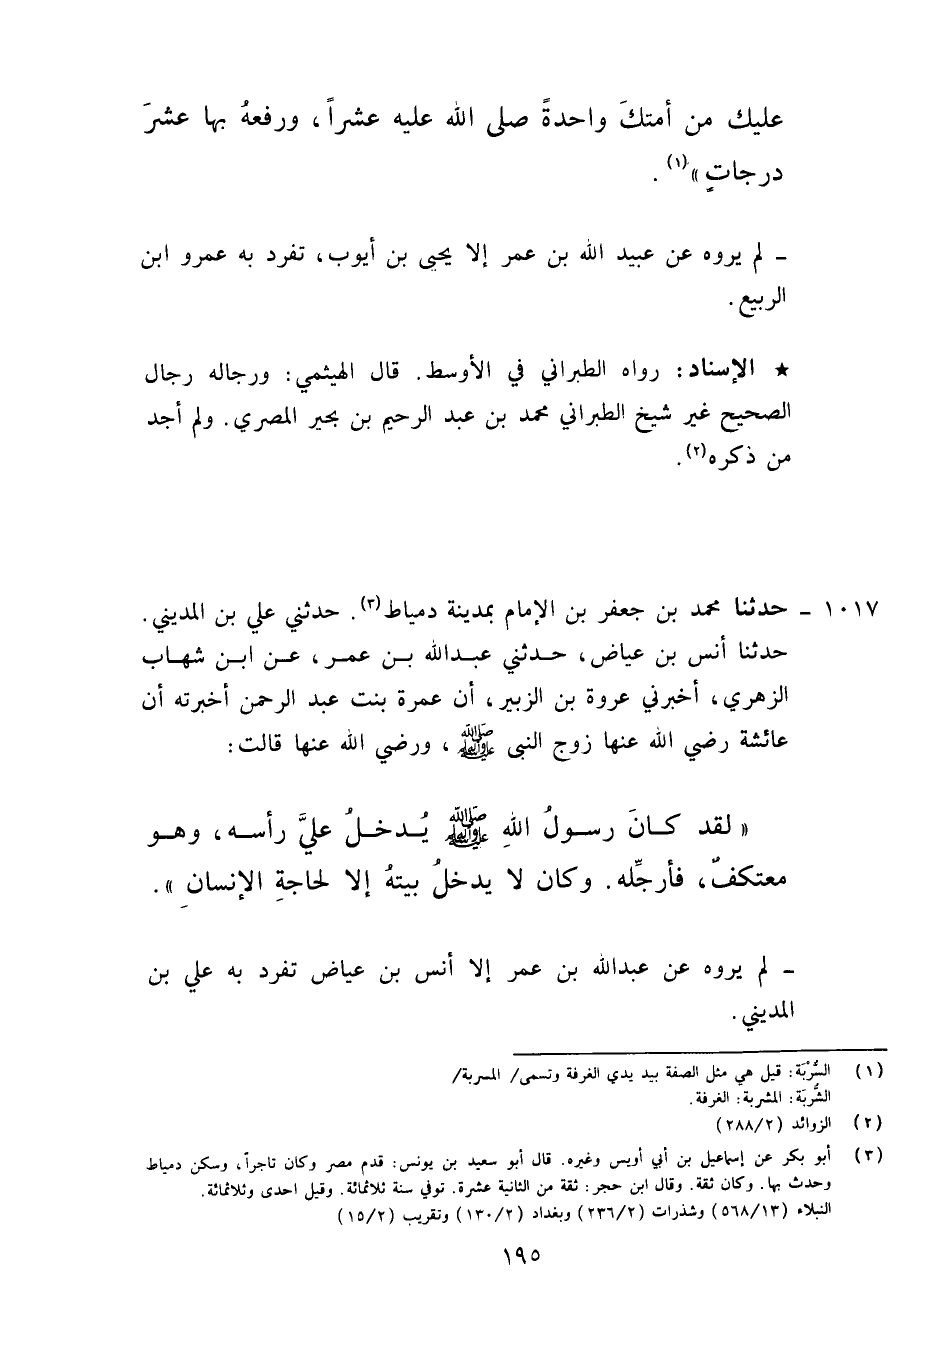 عليك من أمتكَ واحدةً صلى الله عليه عشراً، ورفعهُ بها عشرَ
درجاتٍ»(١).
ـ لم يروه عن عبيد الله بن عمر إلا يحيى بن أيوب، تفرد به عمرو ابن
الربيع.
★ الإسناد: رواه الطبراني في الأوسط. قال الهيثمي: ورجاله رجال
الصحيح غير شيخ الطبراني محمد بن عبد الرحيم بن بحير المصري. ولم أجد
من ذكره(٢).
١٠١٧ ـ حدثنا محمد بن جعفر بن الإمام بمدينة دمياط(٣). حدثني علي بن المديني.
حدثنا أنس بن عياض، حدثني عبدالله بن عمر، عن ابن شهاب
الزهري، أخبرني عروة بن الزبير، أن عمرة بنت عبد الرحمن أخبرته أن
عائشة رضي الله عنها زوج النبى ﷺ، ورضي الله عنها قالت:
« لقد كانَ رسولُ اللهِ ﷺ يُدخلُ عليَّ رأسه، وهو
معتكفٌ، فأرجِّله. وكان لا يدخلُ بيتهُ إلا لحاجةِ الإنسانِ ».
ـ لم يروه عن عبدالله بن عمر إلا أنس بن عياض تفرد به علي بن
المديني.
(١) السُّرْبَة: قيل هي مثل الصفة بيد يدي الغرفة وتسمى/ المسربة/
الشُّرَبَة: المشربة: الغرفة.
(٢) الزوائد (٢٨٨/٢)
(٣) أبو بكر عن إسماعيل بن أبي أويس وغيره. قال أبو سعيد بن يونس: قدم مصر وكان تاجراً، وسكن دمياط
وحدث بها. وكان ثقة. وقال ابن حجر: ثقة من الثانية عشرة. توفي سنة ثلاثمائة. وقيل احدى وثلاثمائة.
النبلاء (٥٦٨/١٣) وشذرات (٢٣٦/٢) وبغداد (١٣٠/٢) وتقريب (١٥/٢)
١٩٥